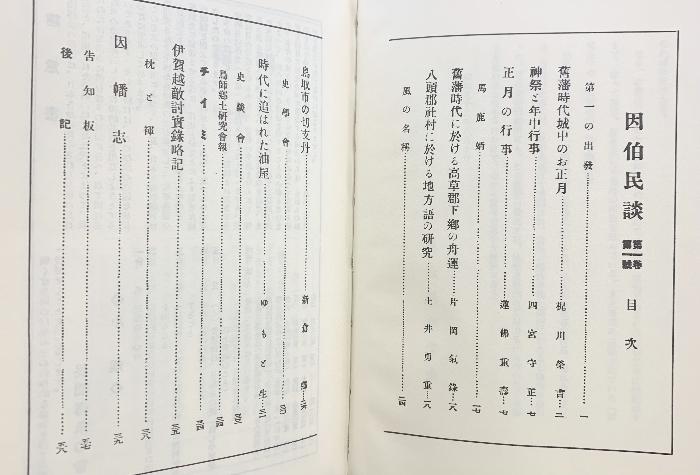 因伯民談 第一卷 第一號 目次
第一の出發…………一
舊藩時代城中のお正月…………梶川榮吉…二
神祭と年中行事…………四宮守正…七
正月の行事…………蓮佛重壽…七
馬鹿婿…………一七
舊藩時代に於ける高草郡下鄕の舟運…………片岡氣錄…一八
八頭郡社村に於ける地方語の硏究…………土井勇重…一八
風の名稱…………二四
鳥取市の切支丹…………新倉
史學會
時代に追はれた油屋…………ゆもと生…三一
史談會
鳥師鄕土硏究會報
チイミ
伊賀越敵討實錄略記
枕と褌
因幡志
告知板
後記